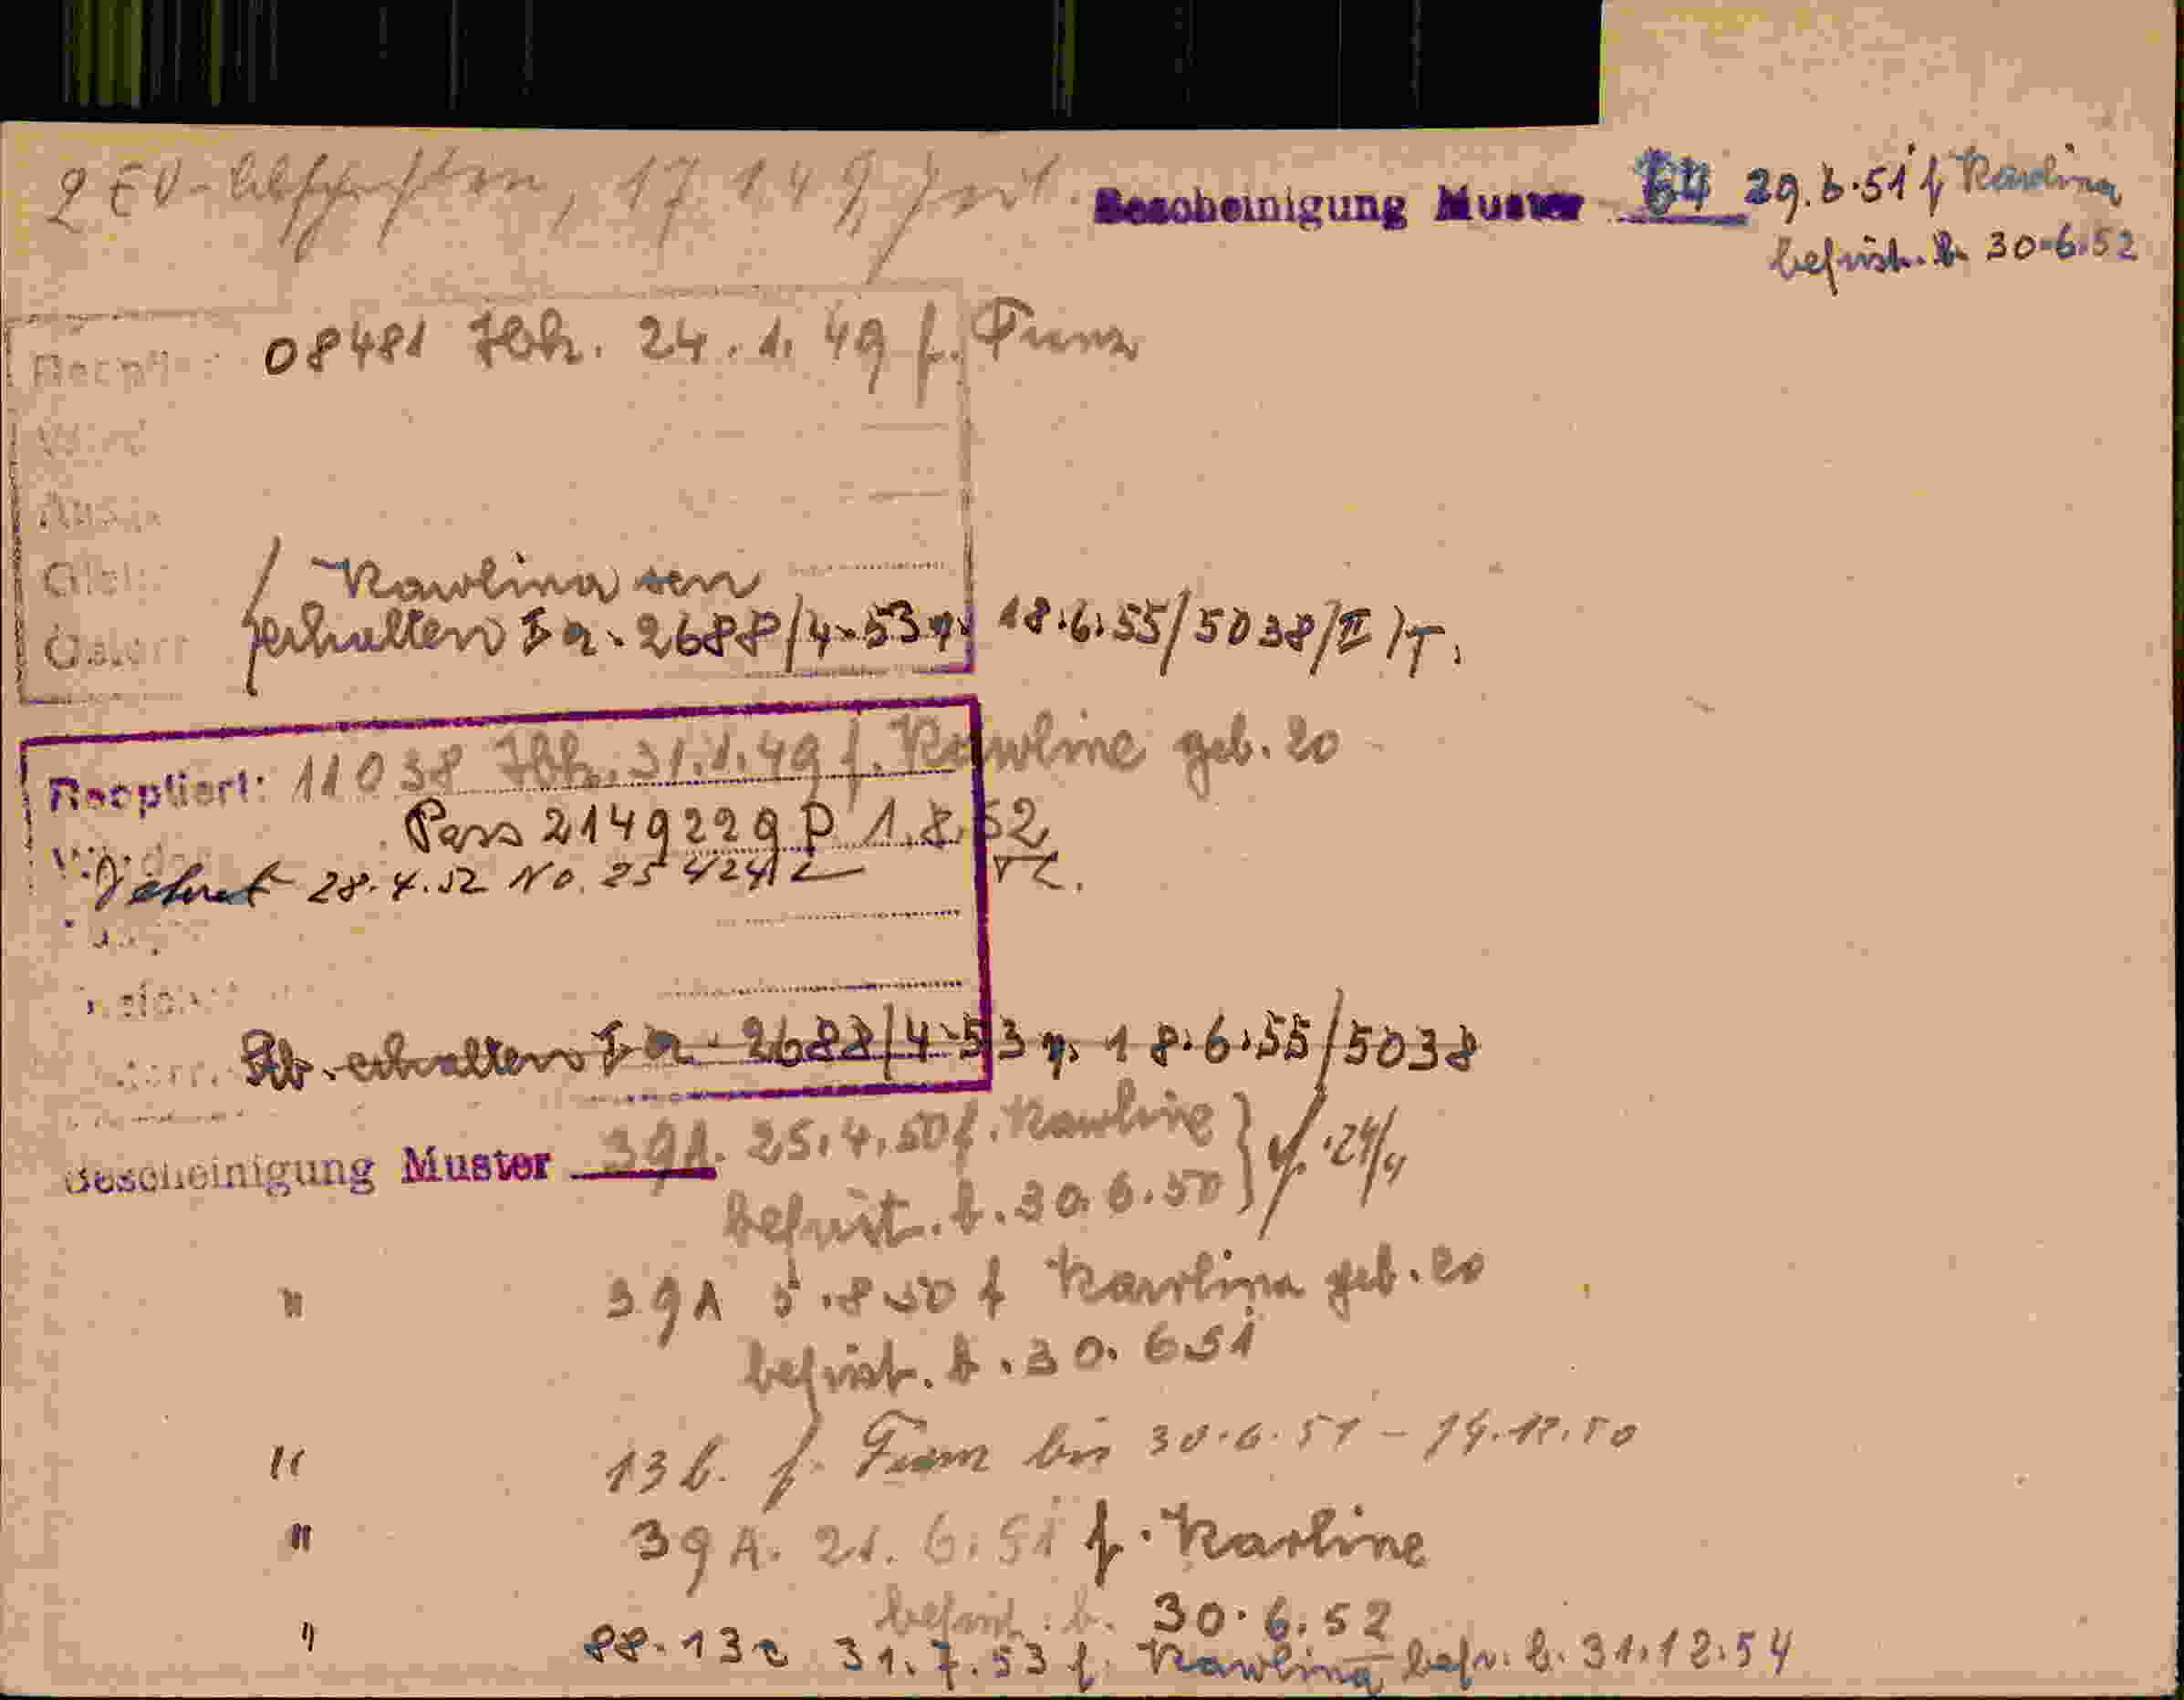 2 EV- 17.1.49
Bescheinigung Muster 64 29.6.51 f Karolina
befrist. b. 30.6.52
Reoptiert: 08481 Ibk. 24.1.49 f. Franz
Karolina
erhalten I a. 2688/4-53 v. 18.6.55/5038/II/T.
Reoptiert: 11038 Ibk. 31.1.49 f. Karoline geb. 20
Pass 2149229 P 1.8.52
28.4.52 No.
erhalten I a. 2688/4-53 v. 18.6.55/5038
Bescheinigung Muster 39A. 25.4.50 f. Karoline
befrist. b. 30.6.50
" 39A 5.8.50 f Karolina geb. 20
befrist. b. 30.6.51
" 13b. f. Franz bis 30.6.51 - 14.12.50
" 39A. 21.6.51 f. Karoline
befrist. b. 30.6.52
" 88.13a 31.7.53 f. Karolina befr. b. 31.12.54